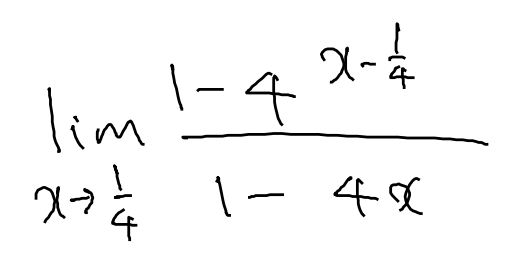 lim x→1/4 (1 - 4^(x - 1/4)) / (1 - 4x)